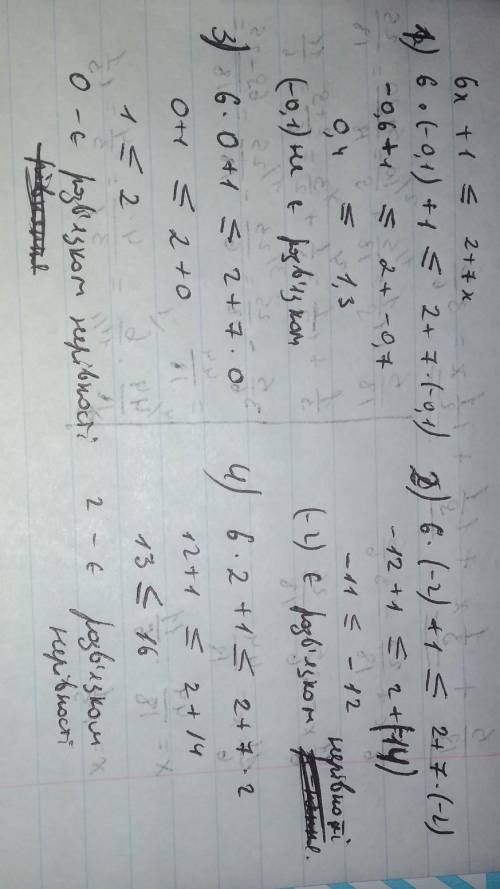 6x + 1 ≤ 2+7x
1) 6·(-0,1)+1 ≤ 2+7·(-0,1)
-0,6+1 ≤ 2+-0,7
0,4 ≤ 1,3
(-0,1) не є розв'язком
2) 6·(-2)+1 ≤ 2+7·(-2)
-12+1 ≤ 2+(-14)
-11 ≤ -12
(-2) є розв'язком
нерівності
3) 6·0+1 ≤ 2+7·0
0+1 ≤ 2+0
1 ≤ 2
0 - є розв'язком нерівності
4) 6·2+1 ≤ 2+7·2
12+1 ≤ 2+14
13 ≤ 16
2 - є розв'язком
нерівності